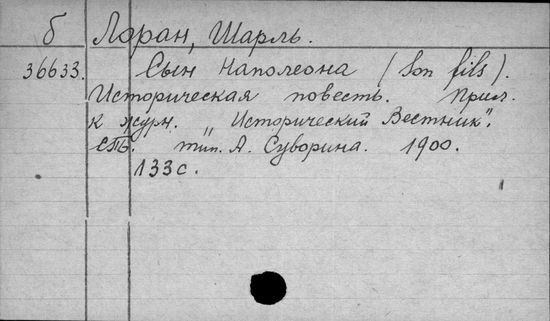 б Лоран, Шарль.
36633. Сын Наполеона (Son fils).
Историческая повесть. Прил.
к журн. "Исторический Вестник".
СПБ. тип. А. Суворина. 1900.
133 с.